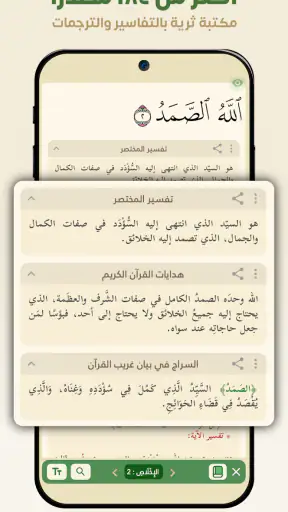 أكثر من ١٨٤ مصدرًا
مكتبة ثرية بالتفاسير والترجمات
ٱللَّهُ ٱلصَّمَدُ ٢
تفسير المختصر
هو السيّد الذي انتهى إليه السُّؤْدَد في صفات الكمال
تفسير المختصر
هو السيّد الذي انتهى إليه السُّؤْدَد في صفات الكمال
والجمال، الذي تصمد إليه الخلائق.
هدايات القرآن الكريم
الله وحدَه الصمدُ الكامل في صفات الشَّرف والعظَمة، الذي
يحتاج إليه جميعُ الخلائق ولا يحتاج إلى أحد، فبؤسًا لمَن
جعل حاجاته عند سواه.
السراج في بيان غريب القرآن
﴿الصَمَدُ﴾ السَّيِّدُ الَّذِي كَمُلَ فِي سُؤْدَدِهِ وَغِنَاهُ، وَالَّذِي
يُقْصَدُ فِي قَضَاءِ الحَوَائِجِ.
• تفسير الآية:
TT
الإخلاص : 2